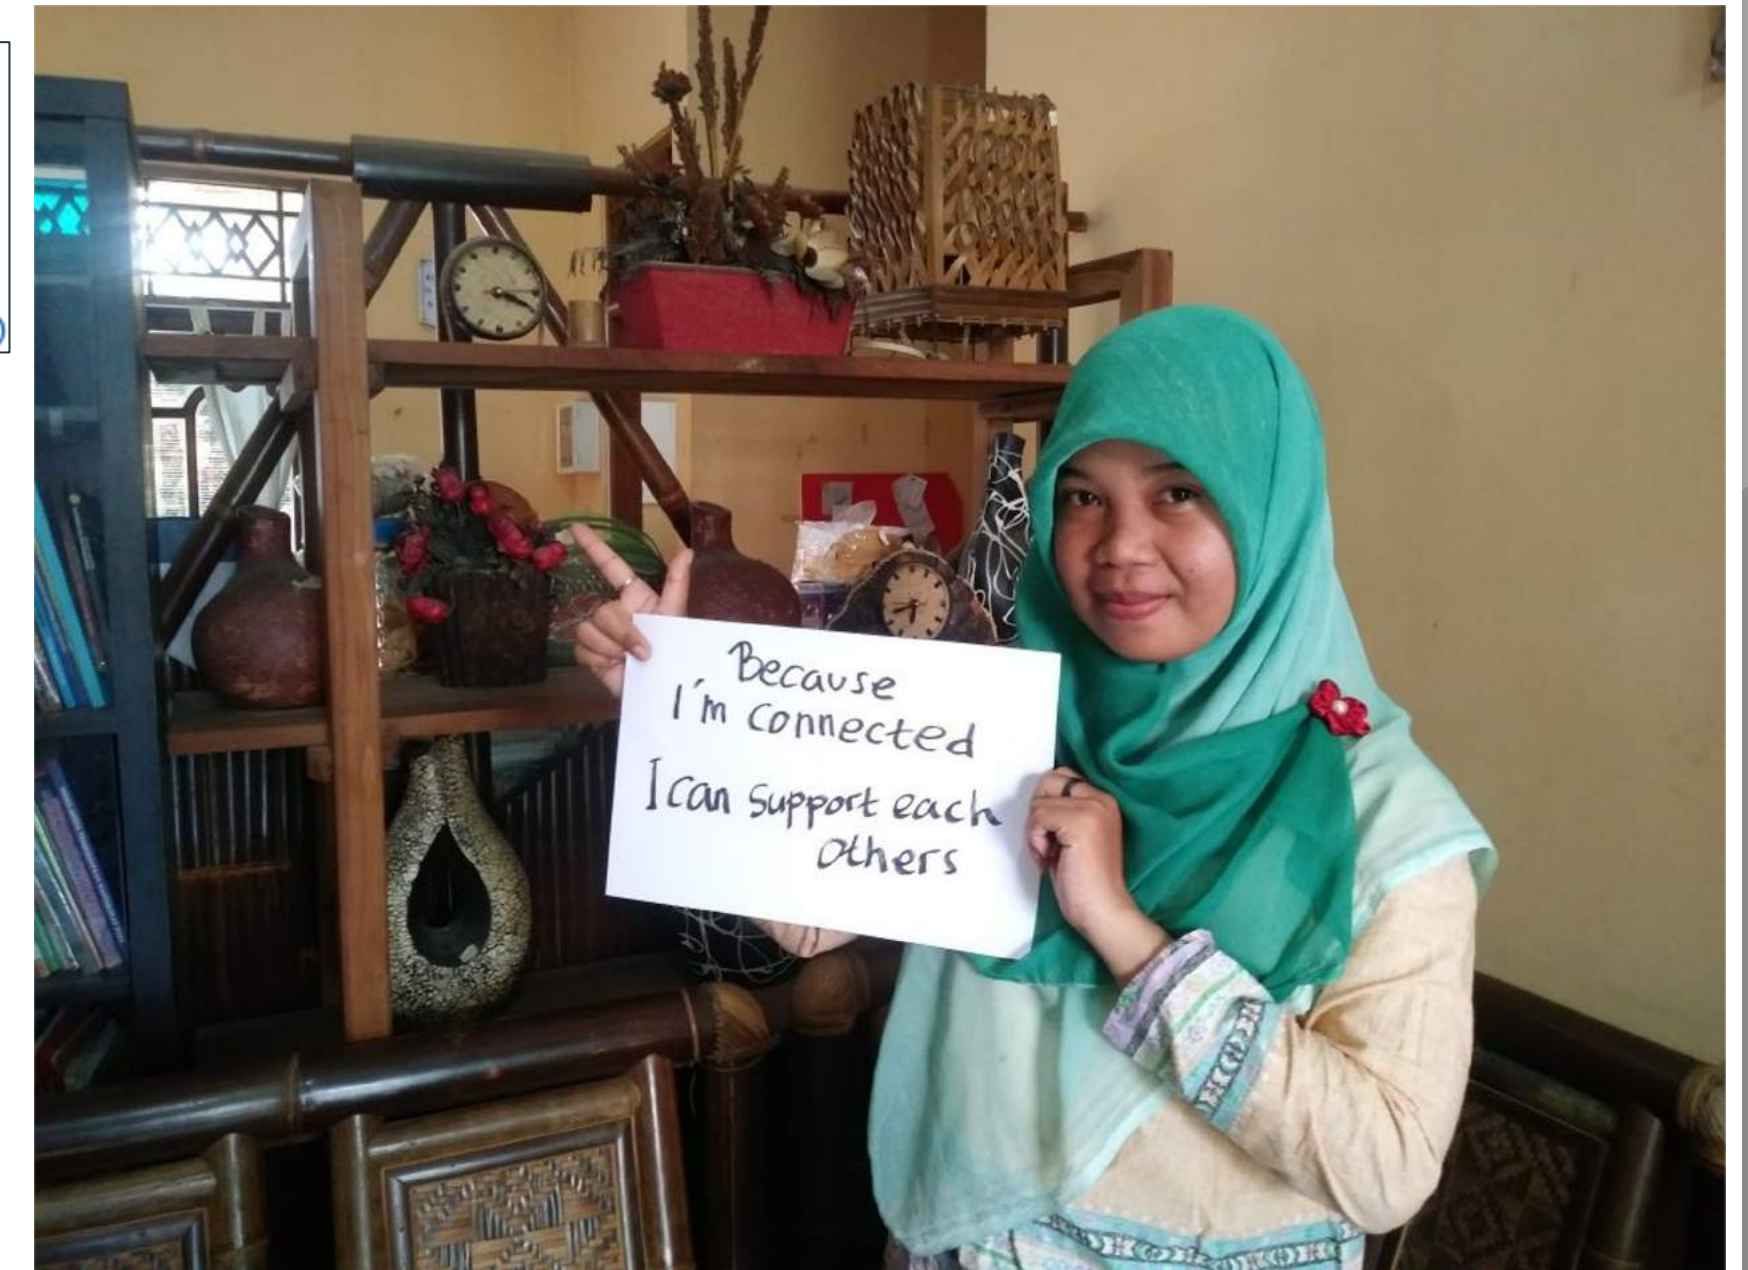 Because
I'm connected
I can support each
others